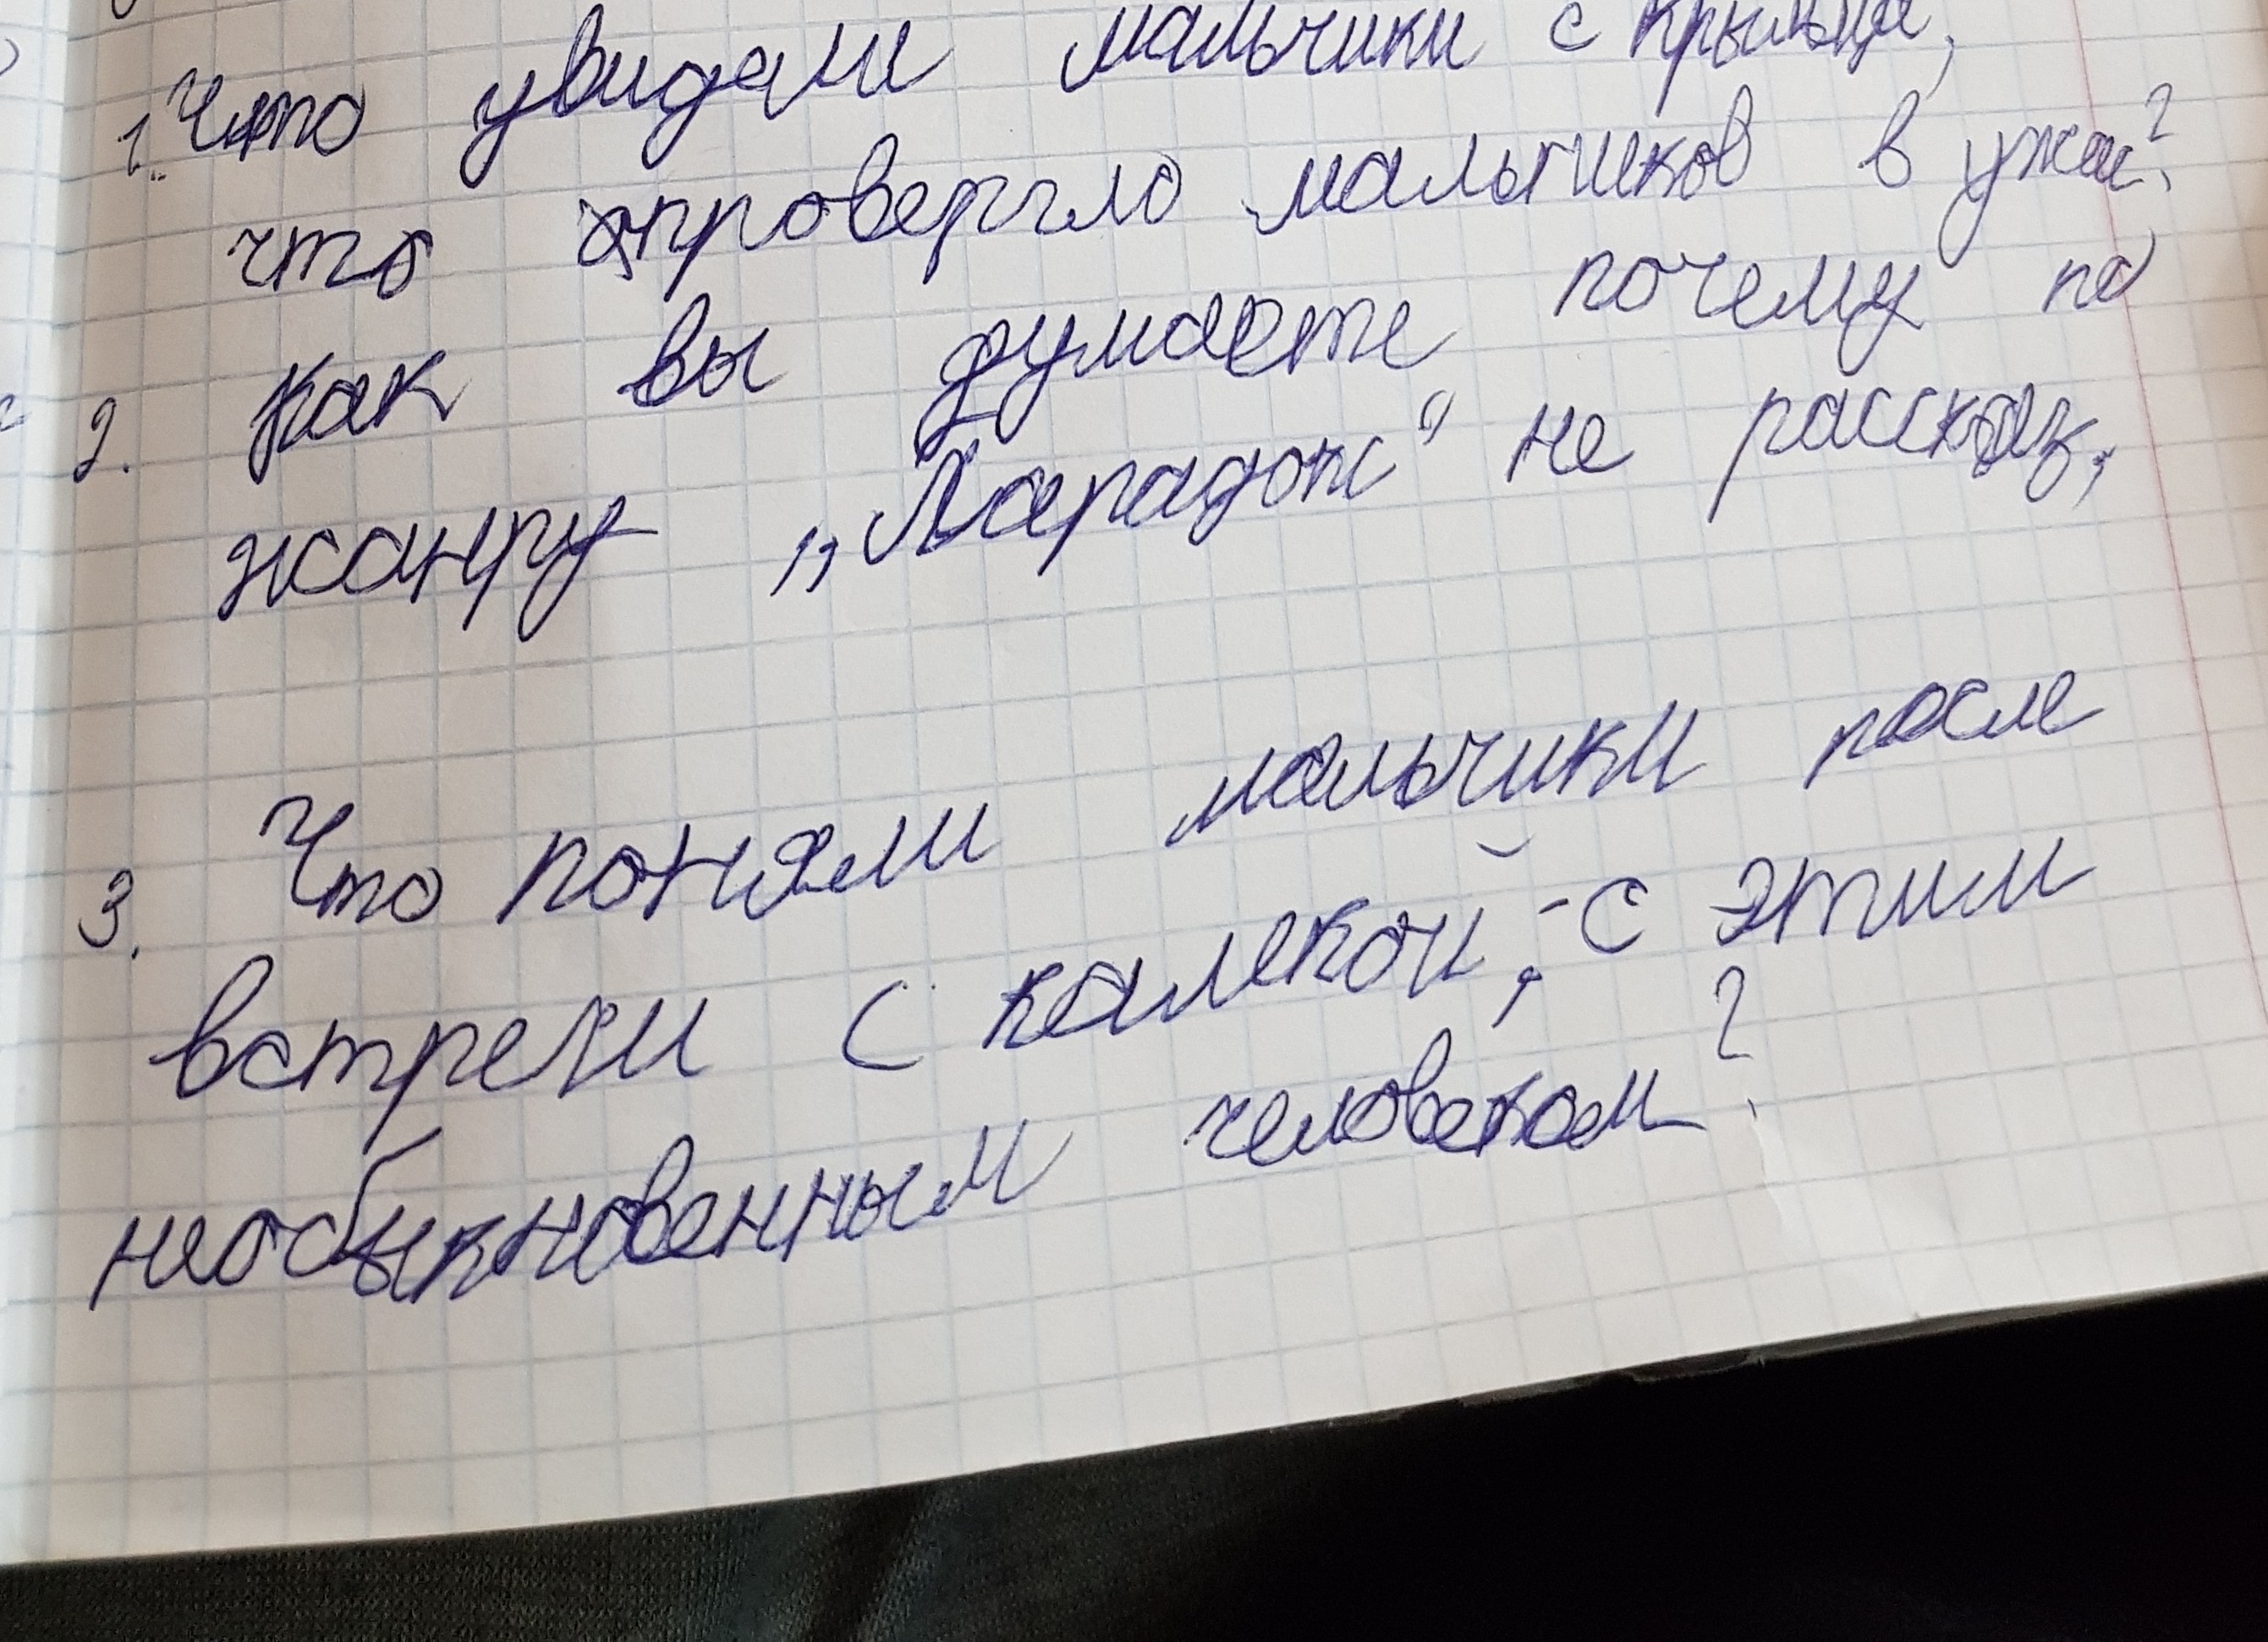 1. Что увидели мальчики с крыльца,
что провергло мальчиков в ужас?
2. Как вы думаете почему по
жанру „Парадокс“ не рассказ,
3. Что поняли мальчики после
встречи с калекой, - с этим
необыкновенным человеком?